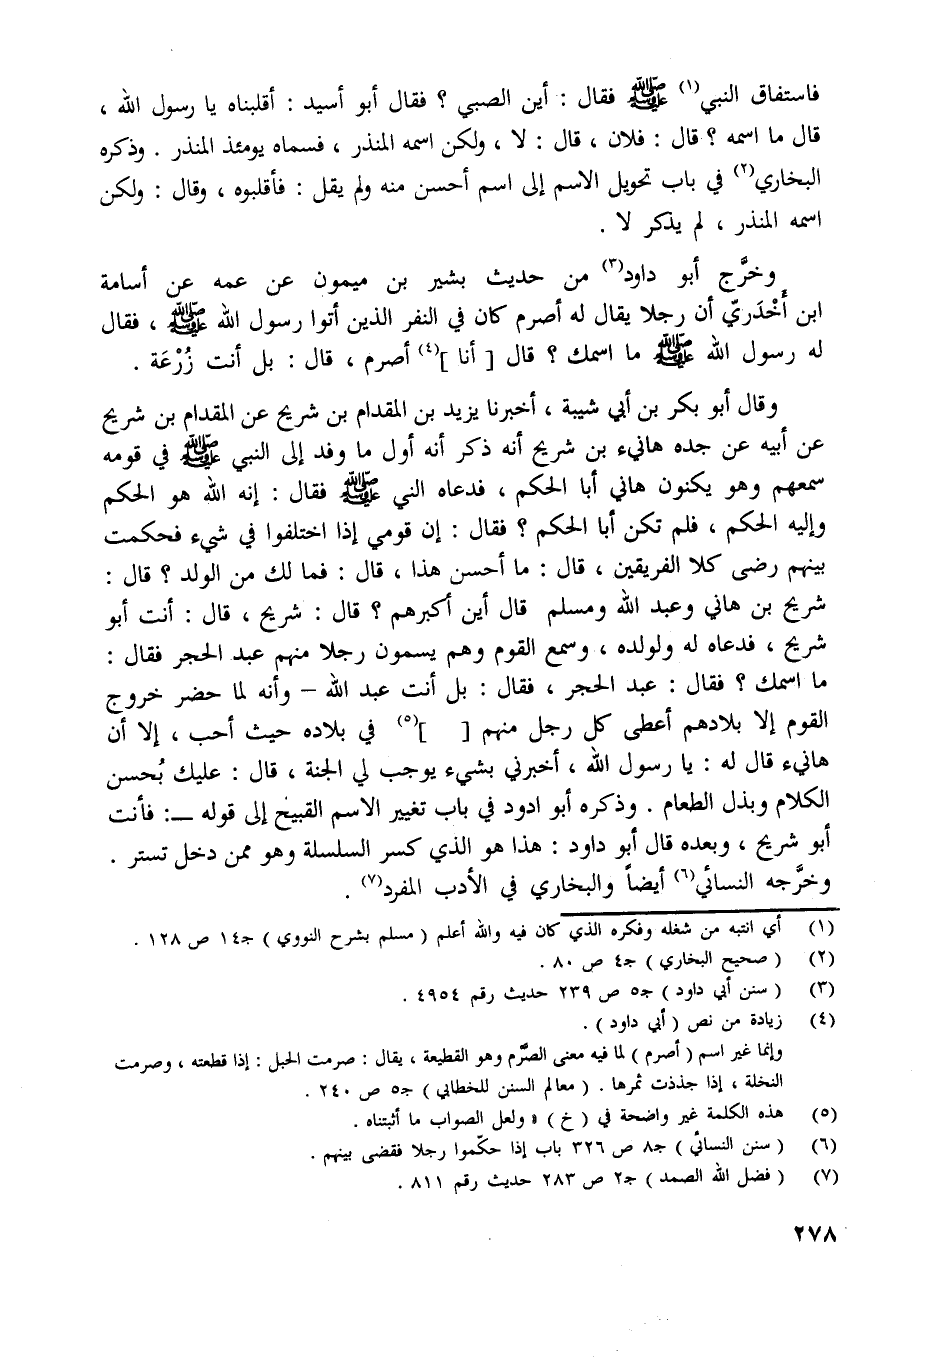 فاستفاق النبي(١) ﷺ فقال : أين الصبي ؟ فقال أبو أسيد : أقلبناه يا رسول الله ،
قال ما اسمه ؟ قال : فلان ، قال : لا ، ولكن اسمه المنذر ، فسماه يومئذ المنذر . وذكره
البخاري(٢) في باب تحويل الاسم إلى اسم أحسن منه ولم يقل : فأقلبوه ، وقال : ولكن
اسمه المنذر ، لم يذكر لا .
وخرَّج أبو داود(٣) من حديث بشير بن ميمون عن عمه عن أسامة
ابن أَخْدَريّ أن رجلا يقال له أصرم كان في النفر الذين أتوا رسول الله ﷺ ، فقال
له رسول الله ﷺ ما اسمك ؟ قال [ أنا ](٤) أصرم ، قال : بل أنت زُرْعَة .
وقال أبو بكر بن أبي شيبة ، أخبرنا يزيد بن المقدام بن شريح عن المقدام بن شريح
عن أبيه عن جده هانيء بن شريح أنه ذكر أنه أول ما وفد إلى النبي ﷺ في قومه
سمعهم وهو يكنون هاني أبا الحكم ، فدعاه النبي ﷺ فقال : إنه الله هو الحكم
وإليه الحكم ، فلم تكن أبا الحكم ؟ فقال : إن قومي إذا اختلفوا في شيء فحكمت
بينهم رضى كلا الفريقين ، قال : ما أحسن هذا ، قال : فما لك من الولد ؟ قال :
شريح بن هاني وعبد الله ومسلم قال أين أكبرهم ؟ قال : شريح ، قال : أنت أبو
شريح ، فدعاه له ولولده ، وسمع القوم وهم يسمون رجلا منهم عبد الحجر فقال :
ما اسمك ؟ فقال : عبد الحجر ، فقال : بل أنت عبد الله – وأنه لما حضر خروج
القوم إلا بلادهم أعطى كل رجل منهم [ ](٥) في بلاده حيث أحب ، إلا أن
هانيء قال له : يا رسول الله ، أخبرني بشيء يوجب لي الجنة ، قال : عليك بُحسن
الكلام وبذل الطعام . وذكره أبو ادود في باب تغيير الاسم القبيح إلى قوله ــ: فأنت
أبو شريح ، وبعده قال أبو داود : هذا هو الذي كسر السلسلة وهو ممن دخل تستر .
وخرَّجه النسائي(٦) أيضاً والبخاري في الأدب المفرد(٧) .
(١) أي انتبه من شغله وفكره الذي كان فيه والله أعلم ( مسلم بشرح النووي ) جـ١٤ ص ١٢٨ .
(٢) ( صحيح البخاري ) جـ٤ ص ٨٠ .
(٣) ( سنن أبي داود ) جـ٥ ص ٢٣٩ حديث رقم ٤٩٥٤ .
(٤) زيادة من نص ( أبي داود ) .
وإنما غير اسم ( أصرم ) لما فيه معنى الصَّرم وهو القطيعة ، يقال : صرمت الحبل : إذا قطعته ، وصرمت
النخلة ، إذا جذذت ثمرها . ( معالم السنن للخطابي ) جـ٥ ص ٢٤٠ .
(٥) هذه الكلمة غير واضحة في ( خ ) » ولعل الصواب ما أثبتناه .
(٦) ( سنن النسائي ) جـ٨ ص ٣٢٦ باب إذا حكّموا رجلا فقضى بينهم .
(٧) ( فضل الله الصمد ) جـ٢ ص ٢٨٣ حديث رقم ٨١١ .
٢٧٨